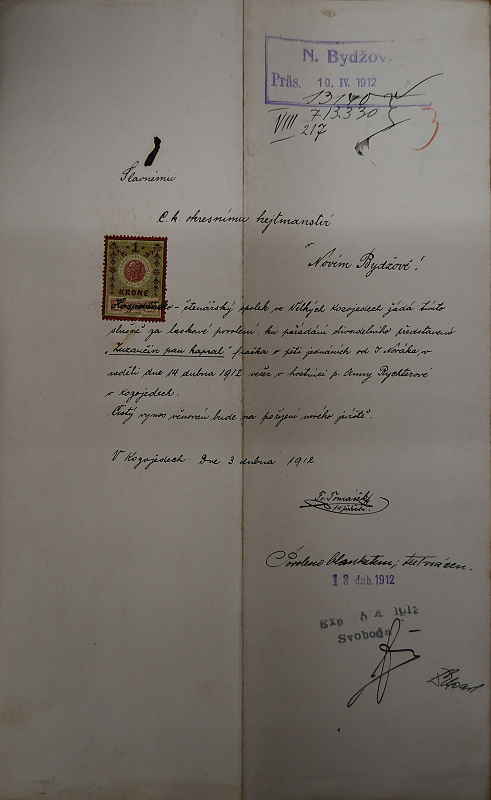 N. Bydžov.
Präs. 10. IV. 1912
13140
713330
VIII
217
3
Slavnému
C. k. okresnímu hejtmanství
v Novém Bydžově!
1
KRONE
Hospodářsko-čtenářský spolek ve Velkých Kozojedech žádá tímto
slušně za laskavé povolení ku pořádání divadelního představení
„Zuzančin pan kaprál" fraška o pěti jednáních od J. Nováka v
neděli dne 14 dubna 1912 večer v hostinci p. Anny Rychterové
v Kozojedech.
Čistý výnos věnován bude na pořízení nového jeviště.
V Kozojedech dne 3 dubna 1912
Fr. Tomášek
Povoleno
13 dub. 1912
Exp 5 4 1912
Svoboda